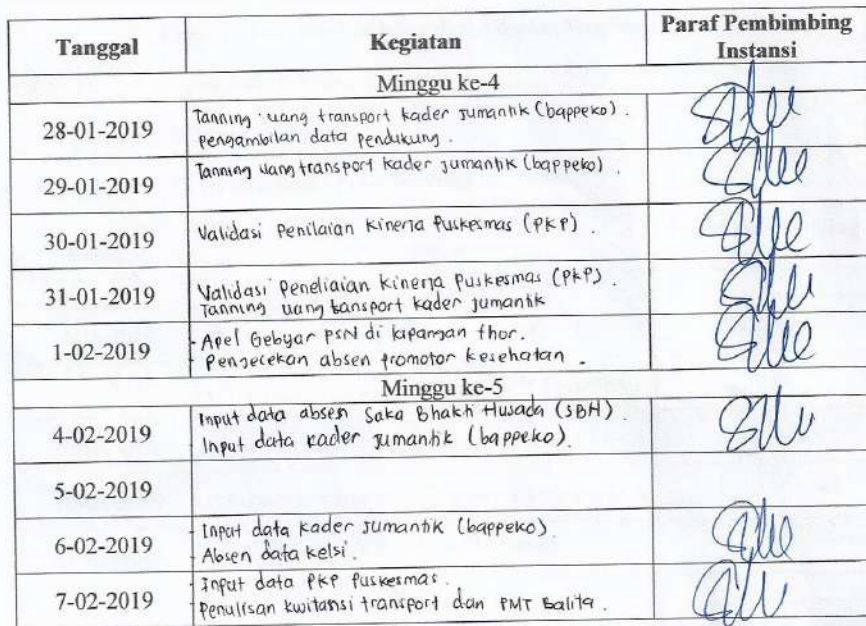 Tanggal Kegiatan Paraf Pembimbing Instansi
Minggu ke-4
28-01-2019 Tanning uang transport kader jumantik (bappeko).
pengambilan data pendukung.
29-01-2019 Tanning uang transport kader jumantik (bappeko).
30-01-2019 Validasi Penilaian Kinerja Puskesmas (PKP).
31-01-2019 Validasi Peneliaian Kinerja Puskesmas (PKP).
Tanning uang transport kader jumantik
1-02-2019 - Apel Gebyar PSN di lapangan thor.
- Pengecekan absen promotor kesehatan.
Minggu ke-5
4-02-2019 Input data absen Saka Bhakti Husada (SBH).
Input data kader jumantik (bappeko).
5-02-2019
6-02-2019 - Input data kader jumantik (bappeko).
- Absen data kelsi.
7-02-2019 - Input data PKP Puskesmas.
- Penulisan kwitansi transport dan PMT Balita.